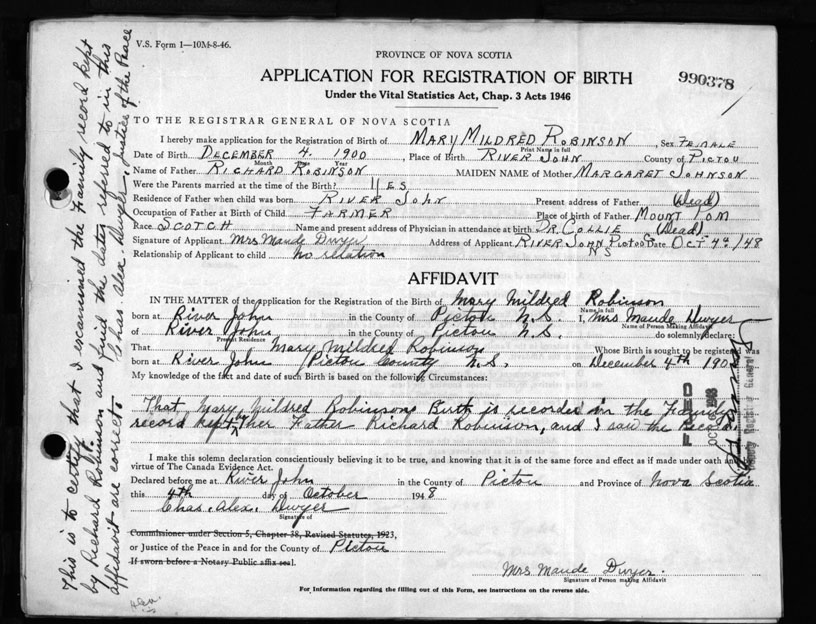 V.S. Form 1—10M-8-46.
PROVINCE OF NOVA SCOTIA
APPLICATION FOR REGISTRATION OF BIRTH
990378
Under the Vital Statistics Act, Chap. 3 Acts 1946
TO THE REGISTRAR GENERAL OF NOVA SCOTIA
I hereby make application for the Registration of Birth of MARY MILDRED ROBINSON, Sex FEMALE
Print Name in full
Date of Birth DECEMBER 4. 1900, Place of Birth RIVER JOHN County of PICTOU
Month Date Year
Name of Father RICHARD ROBINSON MAIDEN NAME of Mother MARGARET JOHNSON
Were the Parents married at the time of the Birth? YES
Residence of Father when child was born RIVER JOHN Present address of Father (Dead)
Occupation of Father at Birth of Child FARMER Place of birth of Father MOUNT TOM
Race SCOTCH Name and present address of Physician in attendance at birth DR. COLLIE (Dead)
Signature of Applicant Mrs Maude Dwyer Address of Applicant RIVER JOHN PICTOU Co Date OCT 4th/48
NS
Relationship of Applicant to child no relation
AFFIDAVIT
IN THE MATTER of the application for the Registration of the Birth of Mary Mildred Robinson
Name in full
born at River John in the County of Pictou N.S. I, Mrs Maude Dwyer
Name of Person Making Affidavit
of River John in the County of Pictou N.S. do solemnly declare:
Present Residence
That Mary Mildred Robinson Whose Birth is sought to be registered was
born at River John Pictou County N.S. on December 4th 190
My knowledge of the fact and date of such Birth is based on the following Circumstances:
That Mary Mildred Robinsons Birth is recorded in the Family
record kept by her Father Richard Robinson, and I saw the Record.
I make this solemn declaration conscientiously believing it to be true, and knowing that it is of the same force and effect as if made under oath and by
virtue of The Canada Evidence Act.
Declared before me at River John in the County of Pictou and Province of Nova Scotia
this 4th day of October 1948
Chas. Alex. Dwyer
Signature of
Commissioner under Section 5, Chapter 38, Revised Statutes, 1923,
or Justice of the Peace in and for the County of Pictou
If sworn before a Notary Public affix seal.
Mrs Maude Dwyer.
Signature of Person making Affidavit
For Information regarding the filling out of this Form, see instructions on the reverse side.
This is to certify that I examined the Family record kept
by Richard Robinson and find the dates referred to in this
affidavit are correct. Chas. Alex. Dwyer. Justice of the Peace
FILED
OCT 1948
Deputy Registrar General